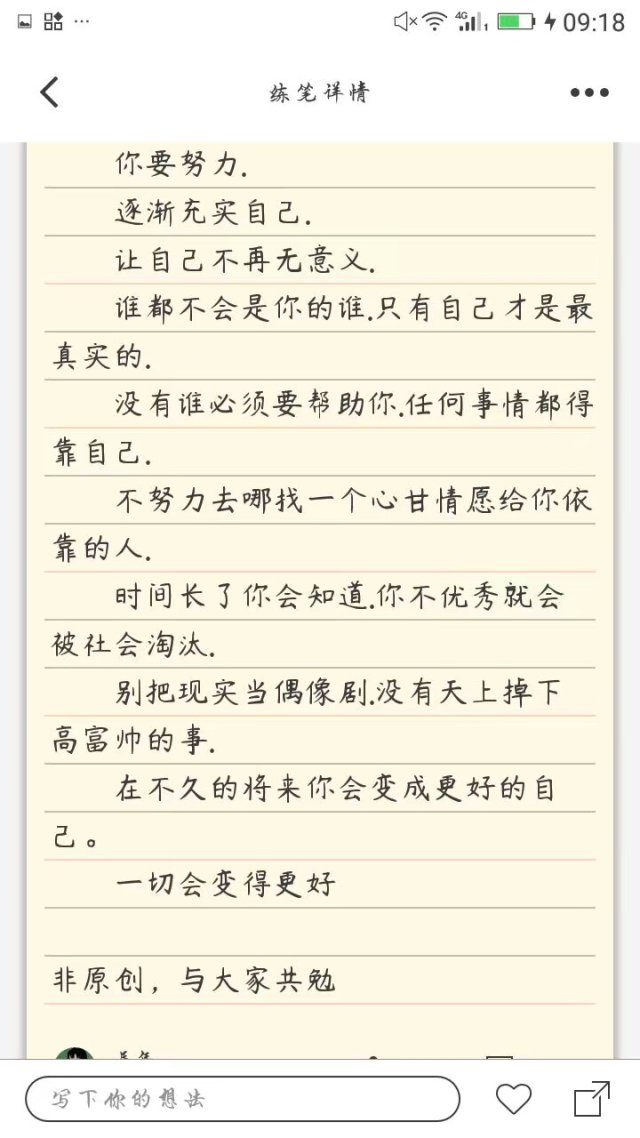 4G
09:18
练笔详情
你要努力.
逐渐充实自己.
让自己不再无意义.
谁都不会是你的谁.只有自己才是最
真实的.
没有谁必须要帮助你.任何事情都得
靠自己.
不努力去哪找一个心甘情愿给你依
靠的人.
时间长了你会知道.你不优秀就会
被社会淘汰.
别把现实当偶像剧.没有天上掉下
高富帅的事.
在不久的将来你会变成更好的自
己。
一切会变得更好
非原创，与大家共勉
写下你的想法